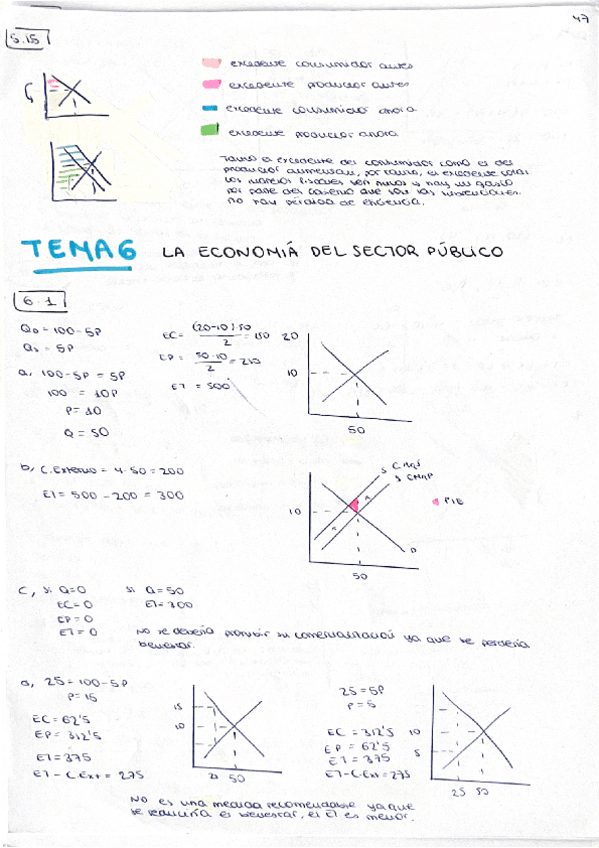 47
5.15
excedente consumidor antes
excedente productor antes
excedente consumidor ahora
excedente productor ahora
Tanto el excedente del consumidor como el del
productor aumentan, por tanto, el excedente total
los ingresos fiscales son nulos y hay un gasto
por parte del gobierno que son las subvenciones.
no hay pérdida de eficiencia.
TEMA 6 LA ECONOMÍA DEL SECTOR PÚBLICO
6.1
QD = 100 - 5P
Qs = 5P
a, 100 - 5P = 5P
100 = 10P
P = 10
Q = 50
EC = (20-10)·50 / 2 = 150
EP = 50·10 / 2 = 210
ET = 500
20
10
50
b, C. Externo = 4·50 = 200
ET = 500 - 200 = 300
S CMgS
S CMgP
10
A
A
PIE
D
50
C, Si Q=0
EC=0
EP=0
ET=0
Si Q=50
ET=300
No se debería prohibir su comercialización ya que se perdería
bienestar.
d, 25 = 100 - 5P
P = 15
EC = 62'5
EP = 312'5
ET = 375
ET - C.Ext = 275
15
10
25 50
25 = 5P
P = 5
EC = 312'5
EP = 62'5
ET = 375
ET - C.Ext = 275
10
5
25 50
No es una medida recomendable ya que
se reduciría el bienestar, el ET es menor.